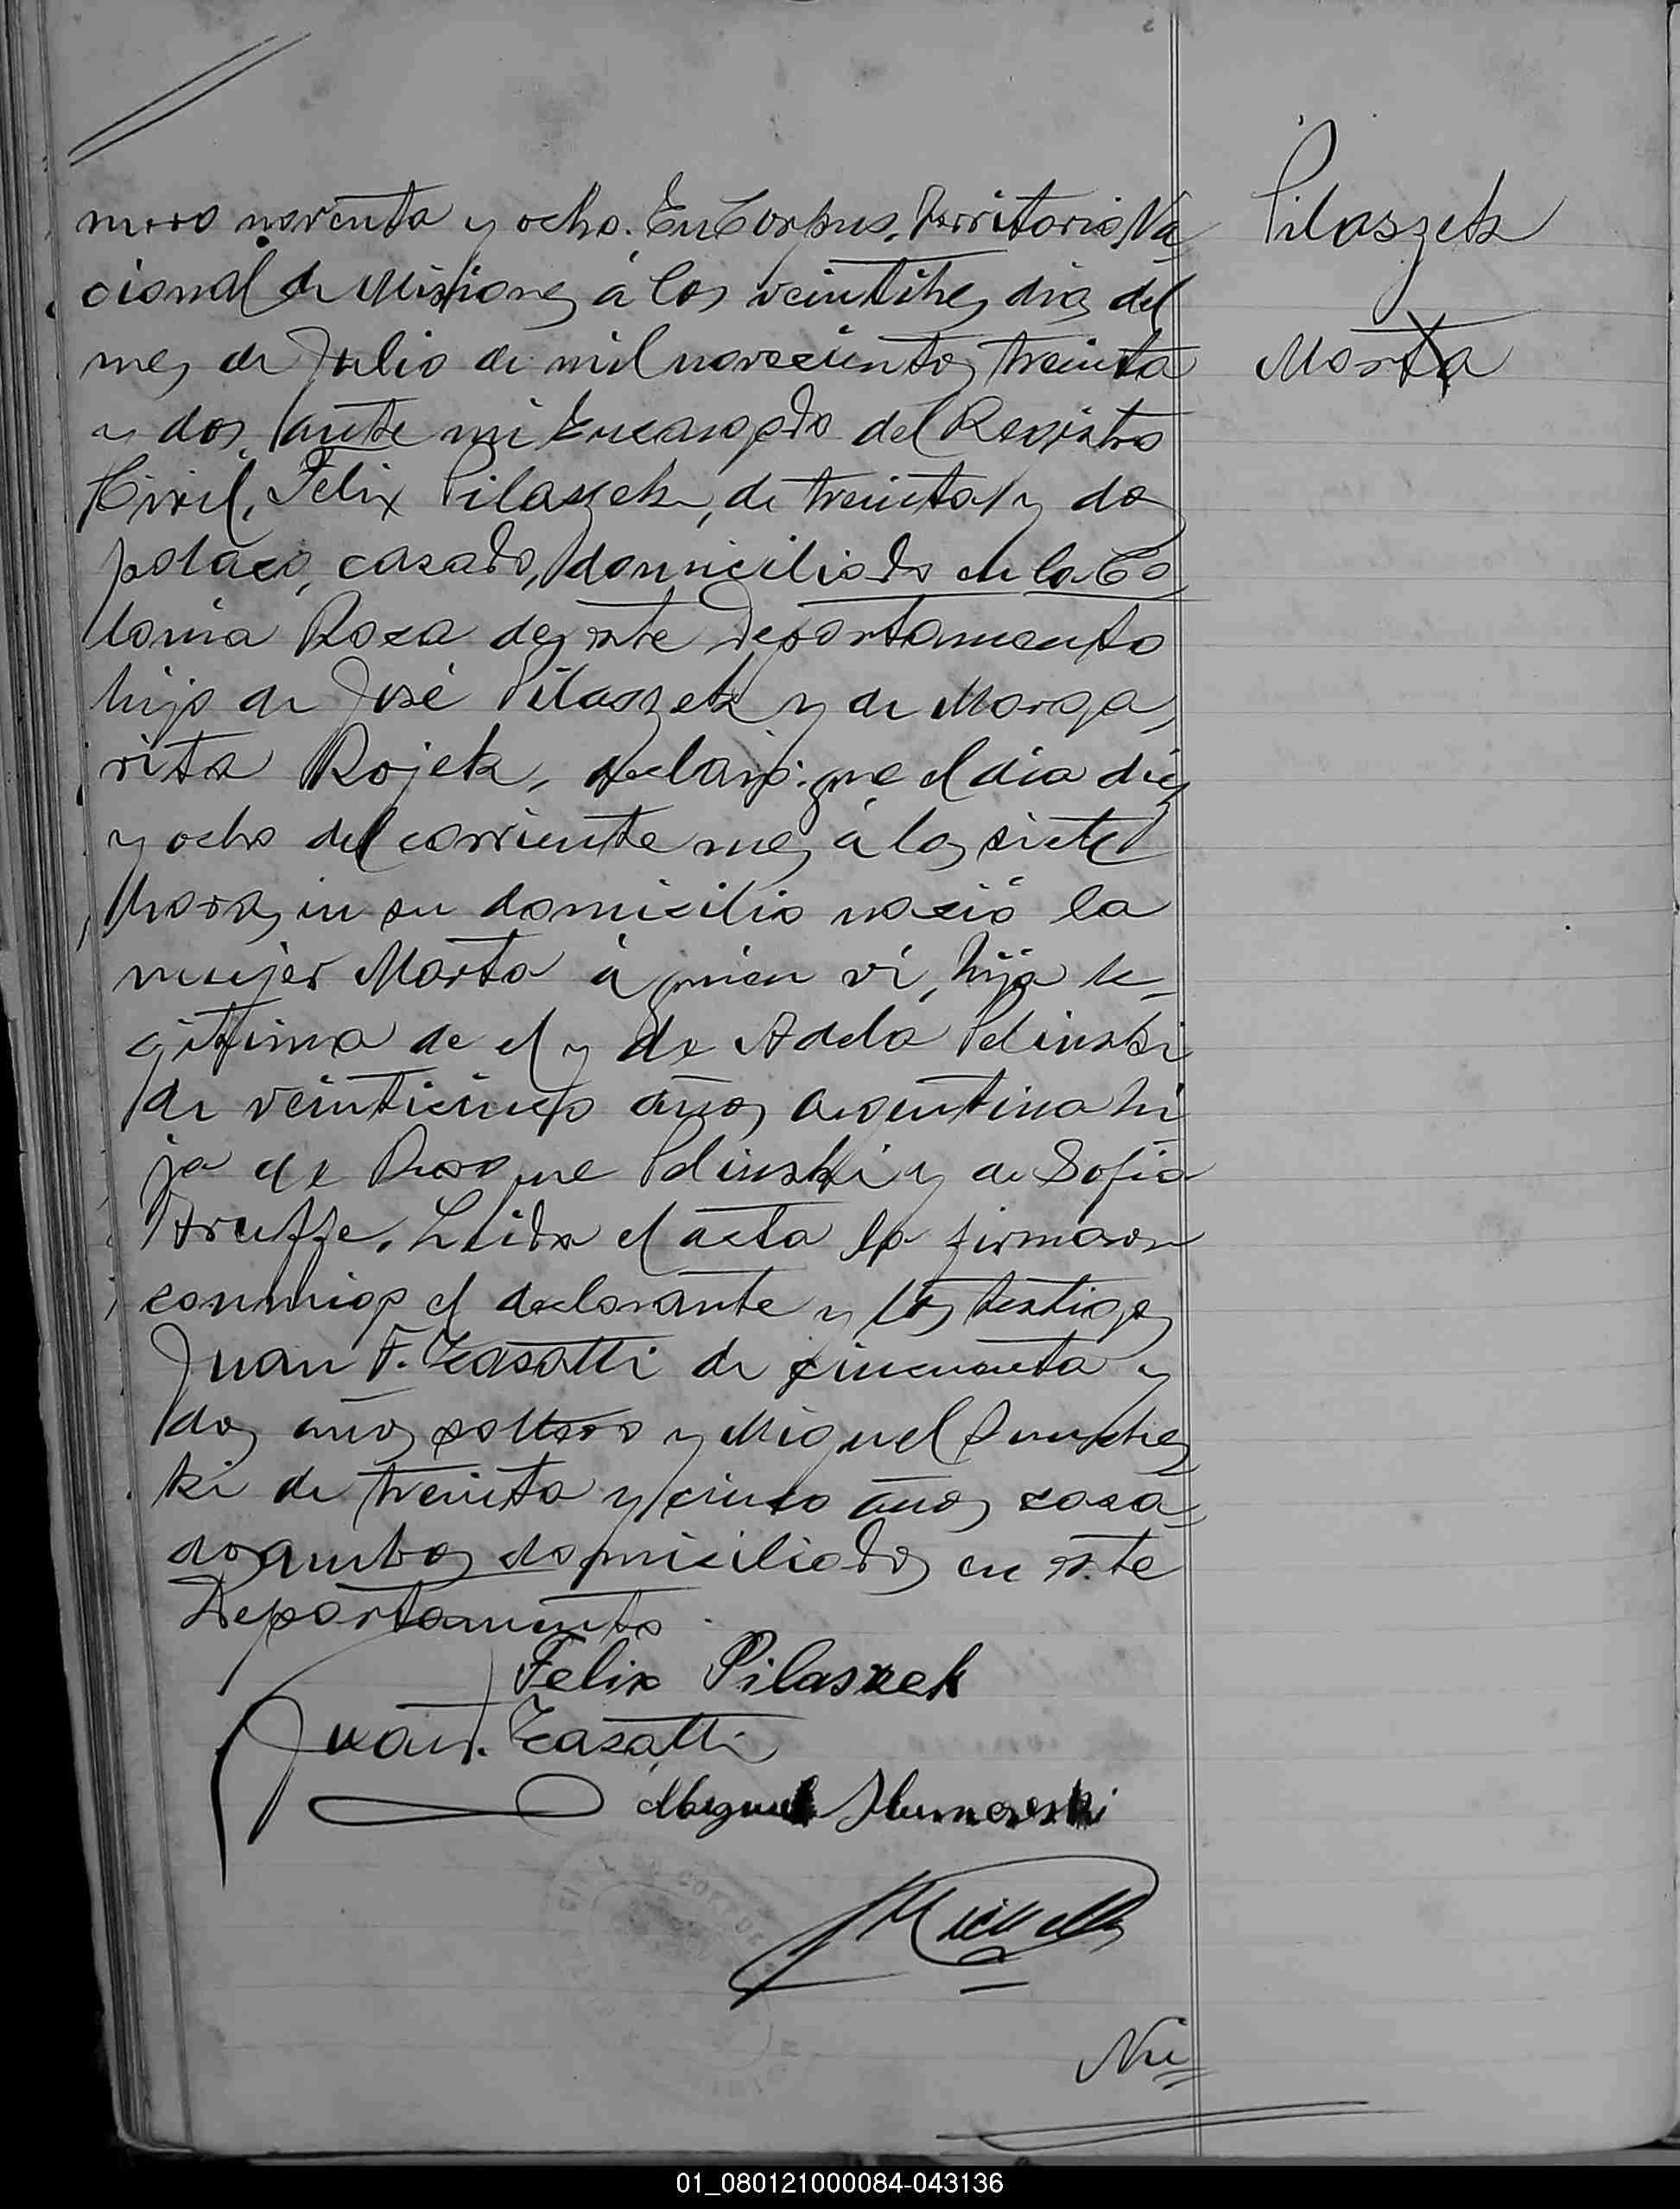 mero noventa y ocho. En Corpus, Territorio Na
cional de Misiones á los veintitres dias del
mes de Julio de mil novecientos treinta
y dos, ante mi Encargado del Registro
Civil, Felix Pilaszek, de treinta y dos
polaco, casado, domiciliado en la Co
lonia Roca de este Departamento
hijo de José Pilaszek y de Marga
rita Rojek, declaró: que el dia diez
y ocho del corriente mes á las siete
horas, en su domicilio nació la
mujer Marta á quien vi, hija le-
gitima de el y de Adela Pelinski
de veinticinco años argentina hi
ja de Roque Pelinski y de Sofia
Leida el acta la firmaron
conmigo el declarante y los testigos
Juan F. Zasatti de cincuenta y
dos años soltero y Miguel
ki de treinta y cinco años casa
do ambos domiciliados en este
Departamento.
Felix Pilaszek
Juan F. Zasatti
Miguel
Nú
Pilaszek
Marta
01_080121000084-043136